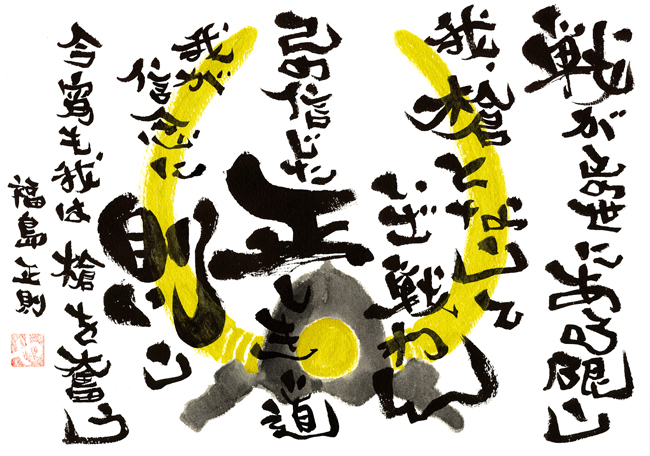 戦がこの世にある限り
我、槍となりて
いざ戦わん
己の信じた
正しき道
我が
信念に
則り
今宵も我は槍を奮う
福島正則